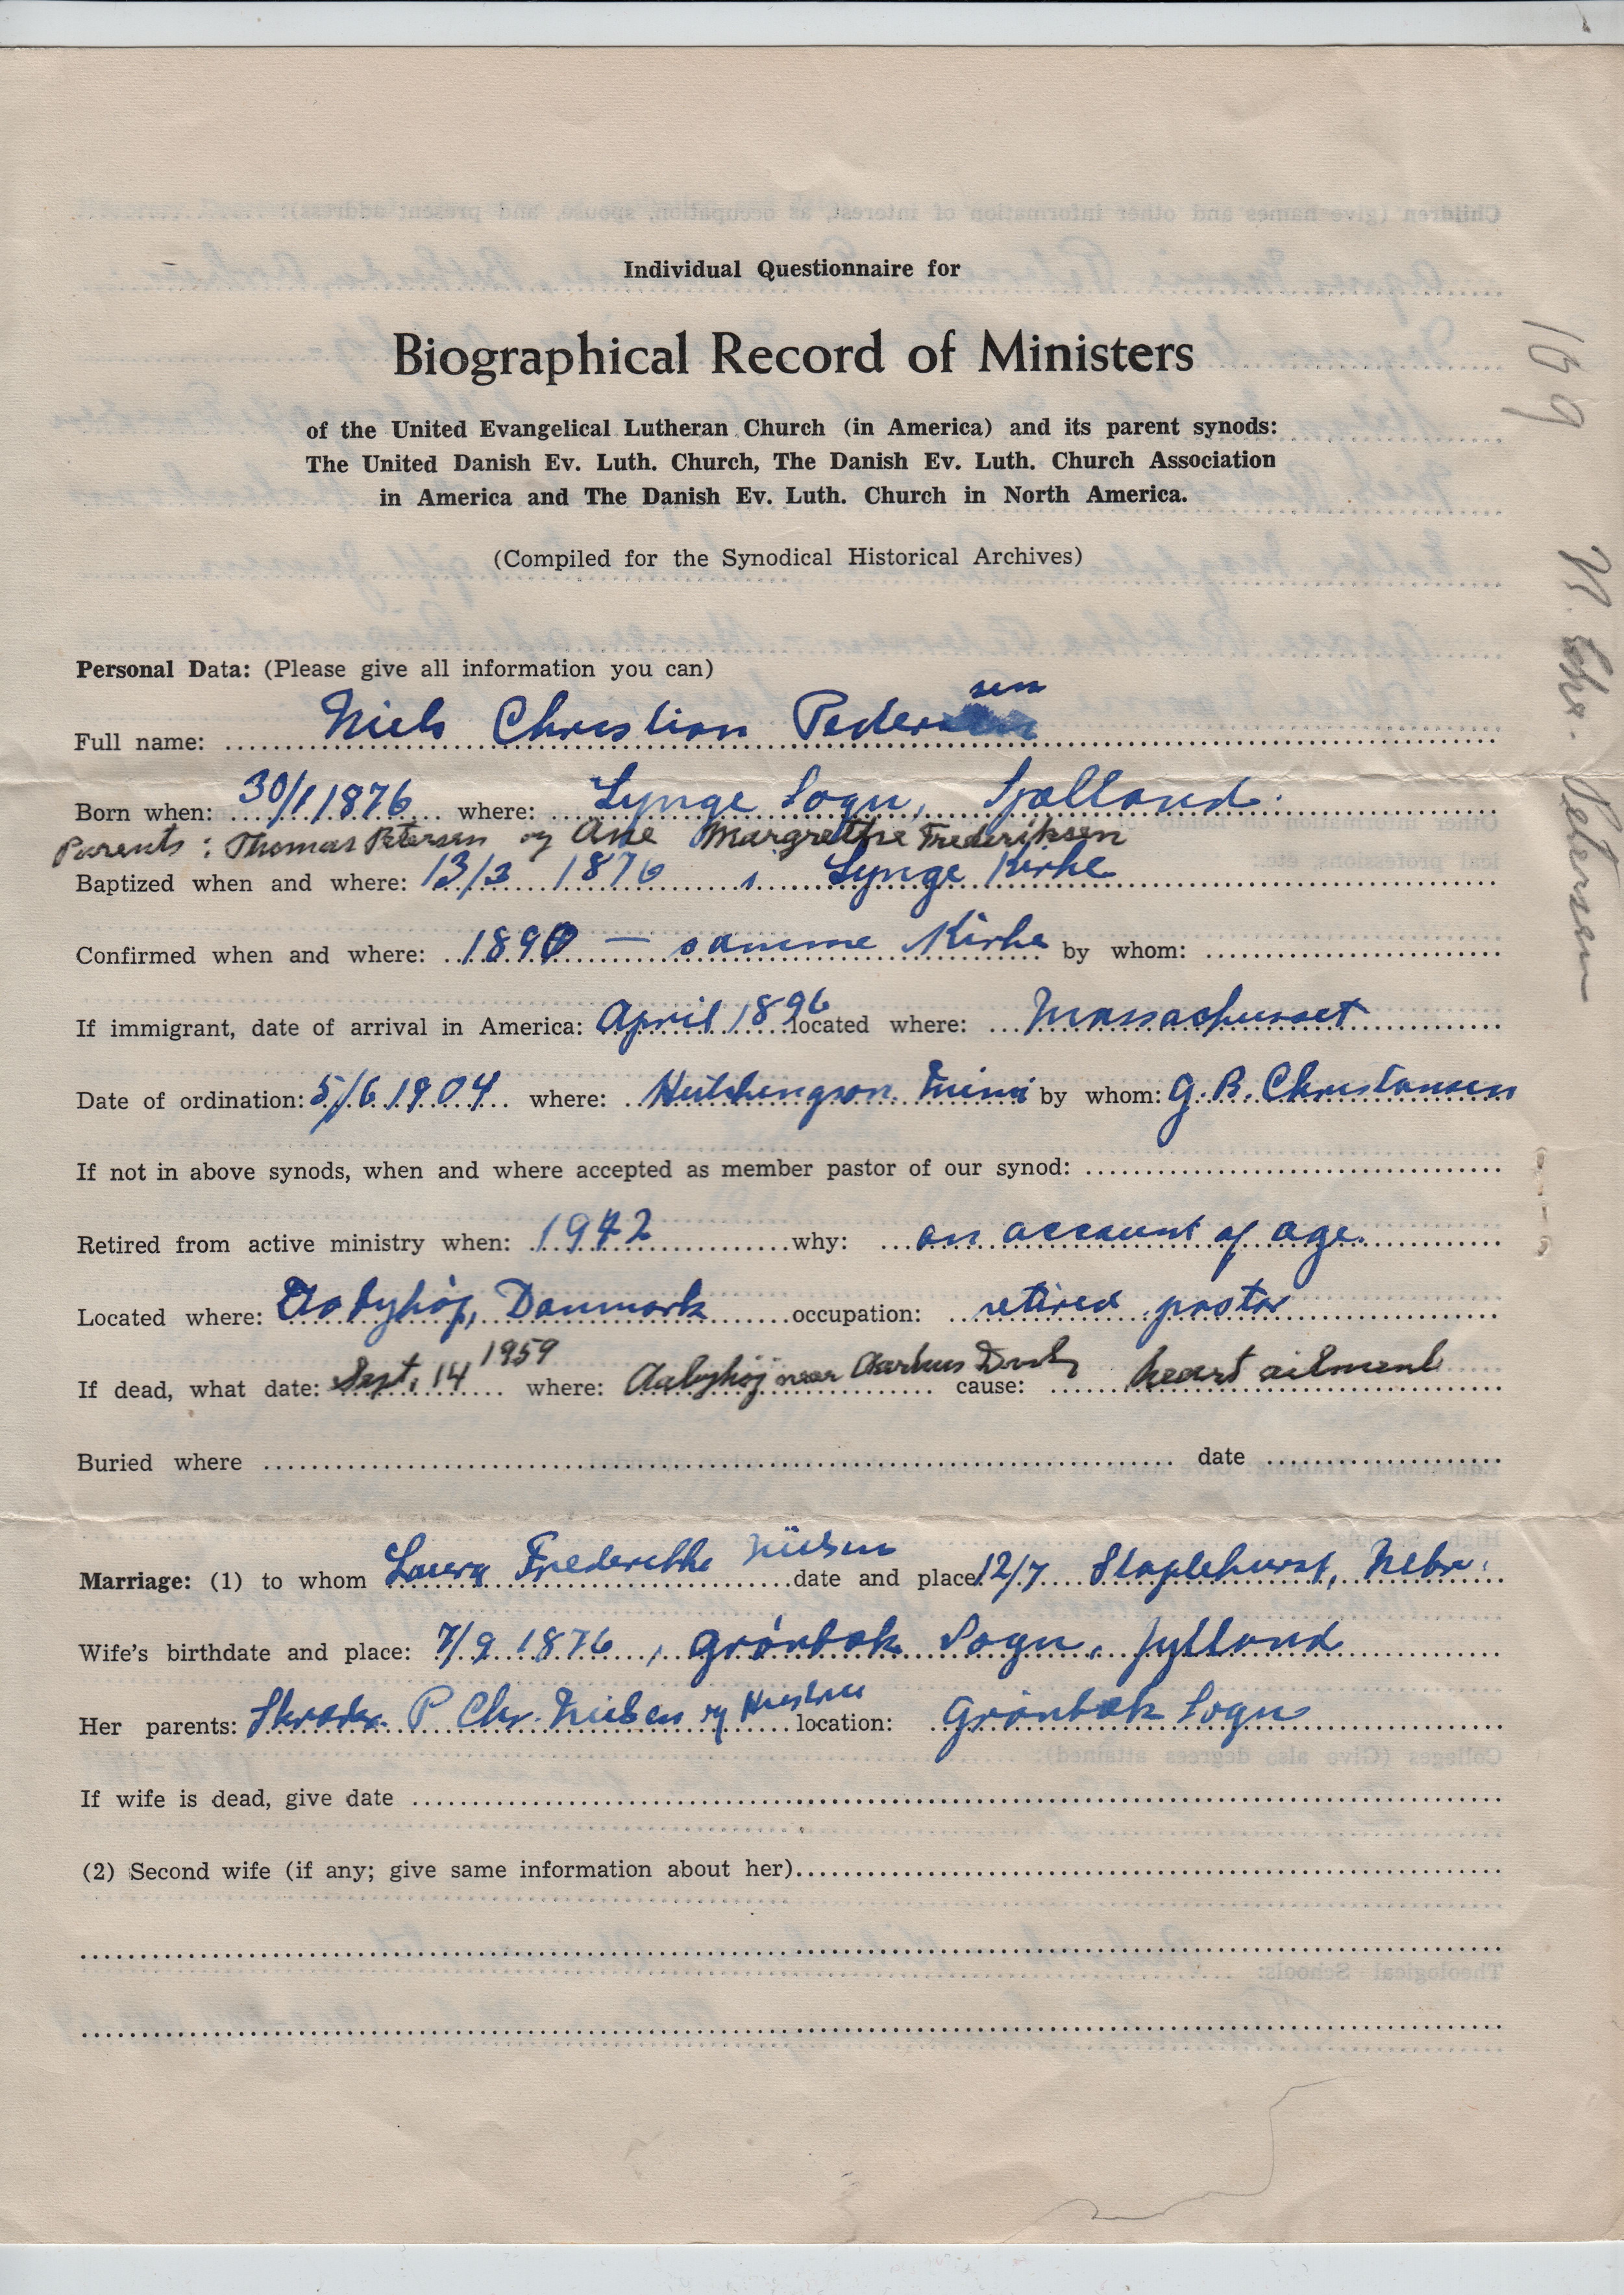 Individual Questionnaire for
Biographical Record of Ministers
of the United Evangelical Lutheran Church (in America) and its parent synods:
The United Danish Ev. Luth. Church, The Danish Ev. Luth. Church Association
in America and The Danish Ev. Luth. Church in North America.
(Compiled for the Synodical Historical Archives)
169 N. Chr. Petersen
Personal Data: (Please give all information you can)
Full name: Niels Christian Pedersen
Born when: 30/1 1876 where: Lynge Sogn, Sjælland.
Parents: Thomas Petersen og Ane Margrethe Frederiksen
Baptized when and where: 13/3 1876 i Lynge Kirke
Confirmed when and where: 1890 — samme Kirke by whom:
If immigrant, date of arrival in America: April 1896 located where: Massachusset
Date of ordination: 5/6 1904 where: Hutchingson Minn by whom: G. B. Christansen
If not in above synods, when and where accepted as member pastor of our synod:
Retired from active ministry when: 1942 why: on account of age.
Located where: Aabyhøj, Danmark occupation: retired pastor
If dead, what date: Sept. 14 1959 where: Aabyhøj near Aarhus cause: heart ailment
Buried where date
Marriage: (1) to whom Laura Frederikke Nielsen date and place 12/7 Staplehurst, Nebr.
Wife's birthdate and place: 7/9 1876, Grønbæk Sogn, Jylland
Her parents: P Chr. Nielsen og Hustru location: Grønbæk Sogn
If wife is dead, give date
(2) Second wife (if any; give same information about her)